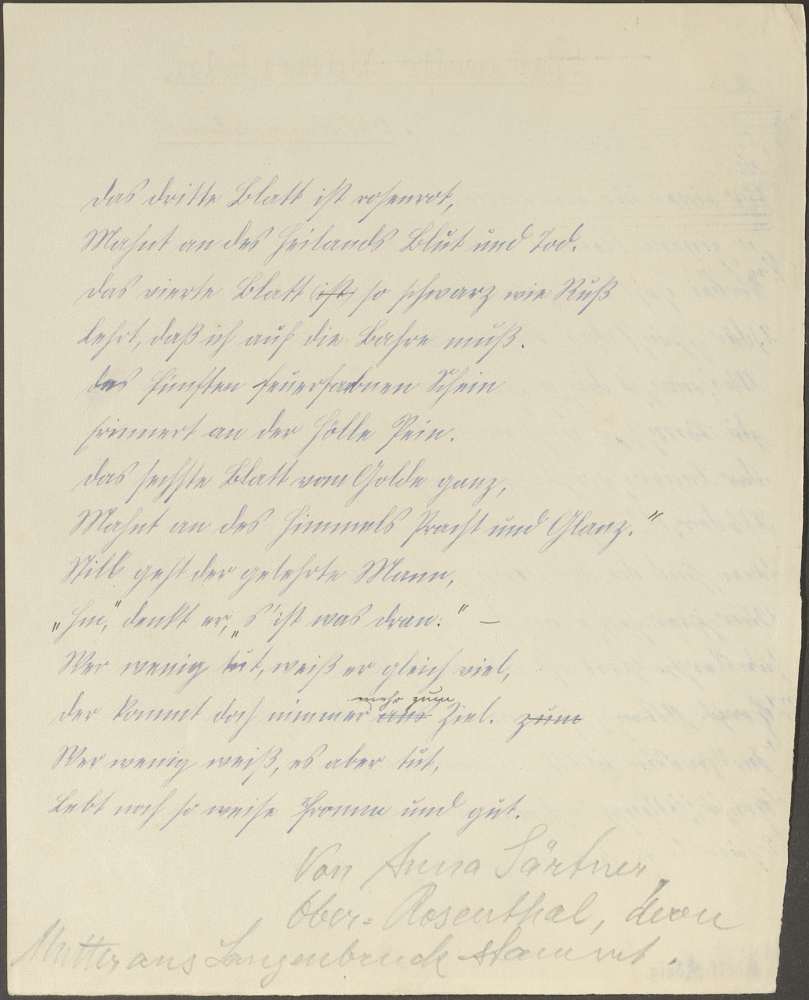 Das dritte Blatt ist rosenrot,
Mahnt an des Heilands Blut und Tod.
Das vierte Blatt ist so schwarz wie Ruß
Lehrt, daß ich auf die Bahre muß.
Des fünften feuerfarbnen Schein
Erinnert an der Hölle Pein.
Das sechste Blatt vom Golde ganz,
Mahnt an des Himmels Pracht und Glanz."
Still geht der gelehrte Mann,
"Hm," denkt er, "s' ist was dran." —
Wer wenig tut, weiß er gleich viel,
mehr zum
Der kommt doch nimmer ans Ziel. zum
Wer wenig weiß, es aber tut,
Lebt noch so weise fromm und gut.
Von Anna Gärtner,
Ober-Rosenthal, deren
Mutter aus Langenbruck stammt.